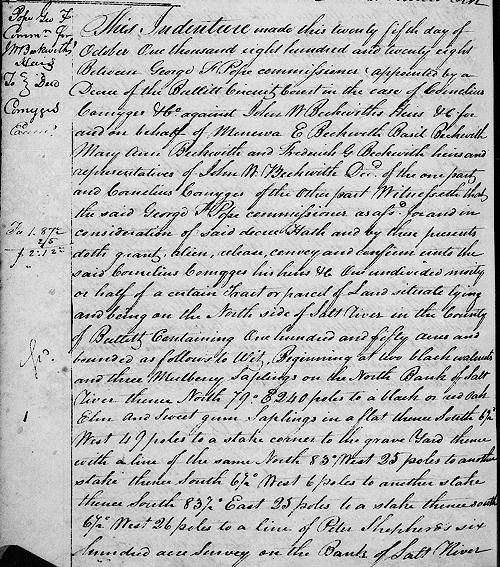 Pope Geo F
Commr for
J W Beckwiths
Heirs
To } Deed
Comyges
This Indenture made this twenty fifth day of
October One thousand eight hundred and twenty eight
Between George F Pope commissioner appointed by a
Decree of the Bullitt Circuit Court in the case of Cornelius
Comyges &c. against John W Beckwiths Heirs &c for
and on behalf of Menerva E Beckwith Basil Beckwith
Mary Ann Beckwith and Frederick G Beckwith heirs and
representatives of John W Beckwith Decd. of the one part
and Cornelius Comyges of the other part Witnesseth that
the said George F Pope commissioner as afsd. for and in
consideration of said decree Hath and by these presents
doth grant, alien, release, convey and confirm unto the
said Cornelius Comyges his heirs &c One undivided moiety
or half of a certain Tract or parcel of Land situate lying
and being on the North side of Salt River in the County
of Bullitt Containing One hundred and fifty acres and
bounded as follows to Wit, Beginning at two black walnuts
and three Mulberry Saplings on the North Bank of Salt
River thence North 79° E 240 poles to a black or red oak
Elm and Sweet gum Saplings in a flat thence South 6½°
West 49 poles to a stake corner to the grave Yard thence
with a line of the same North 83° West 25 poles to another
stake thence South 6½° West 6 poles to another stake
thence South 83½° East 25 poles to a stake thence south
6½° West 26 poles to a line of Peter Shepherds six
hundred acre Survey on the Bank of Salt River
1